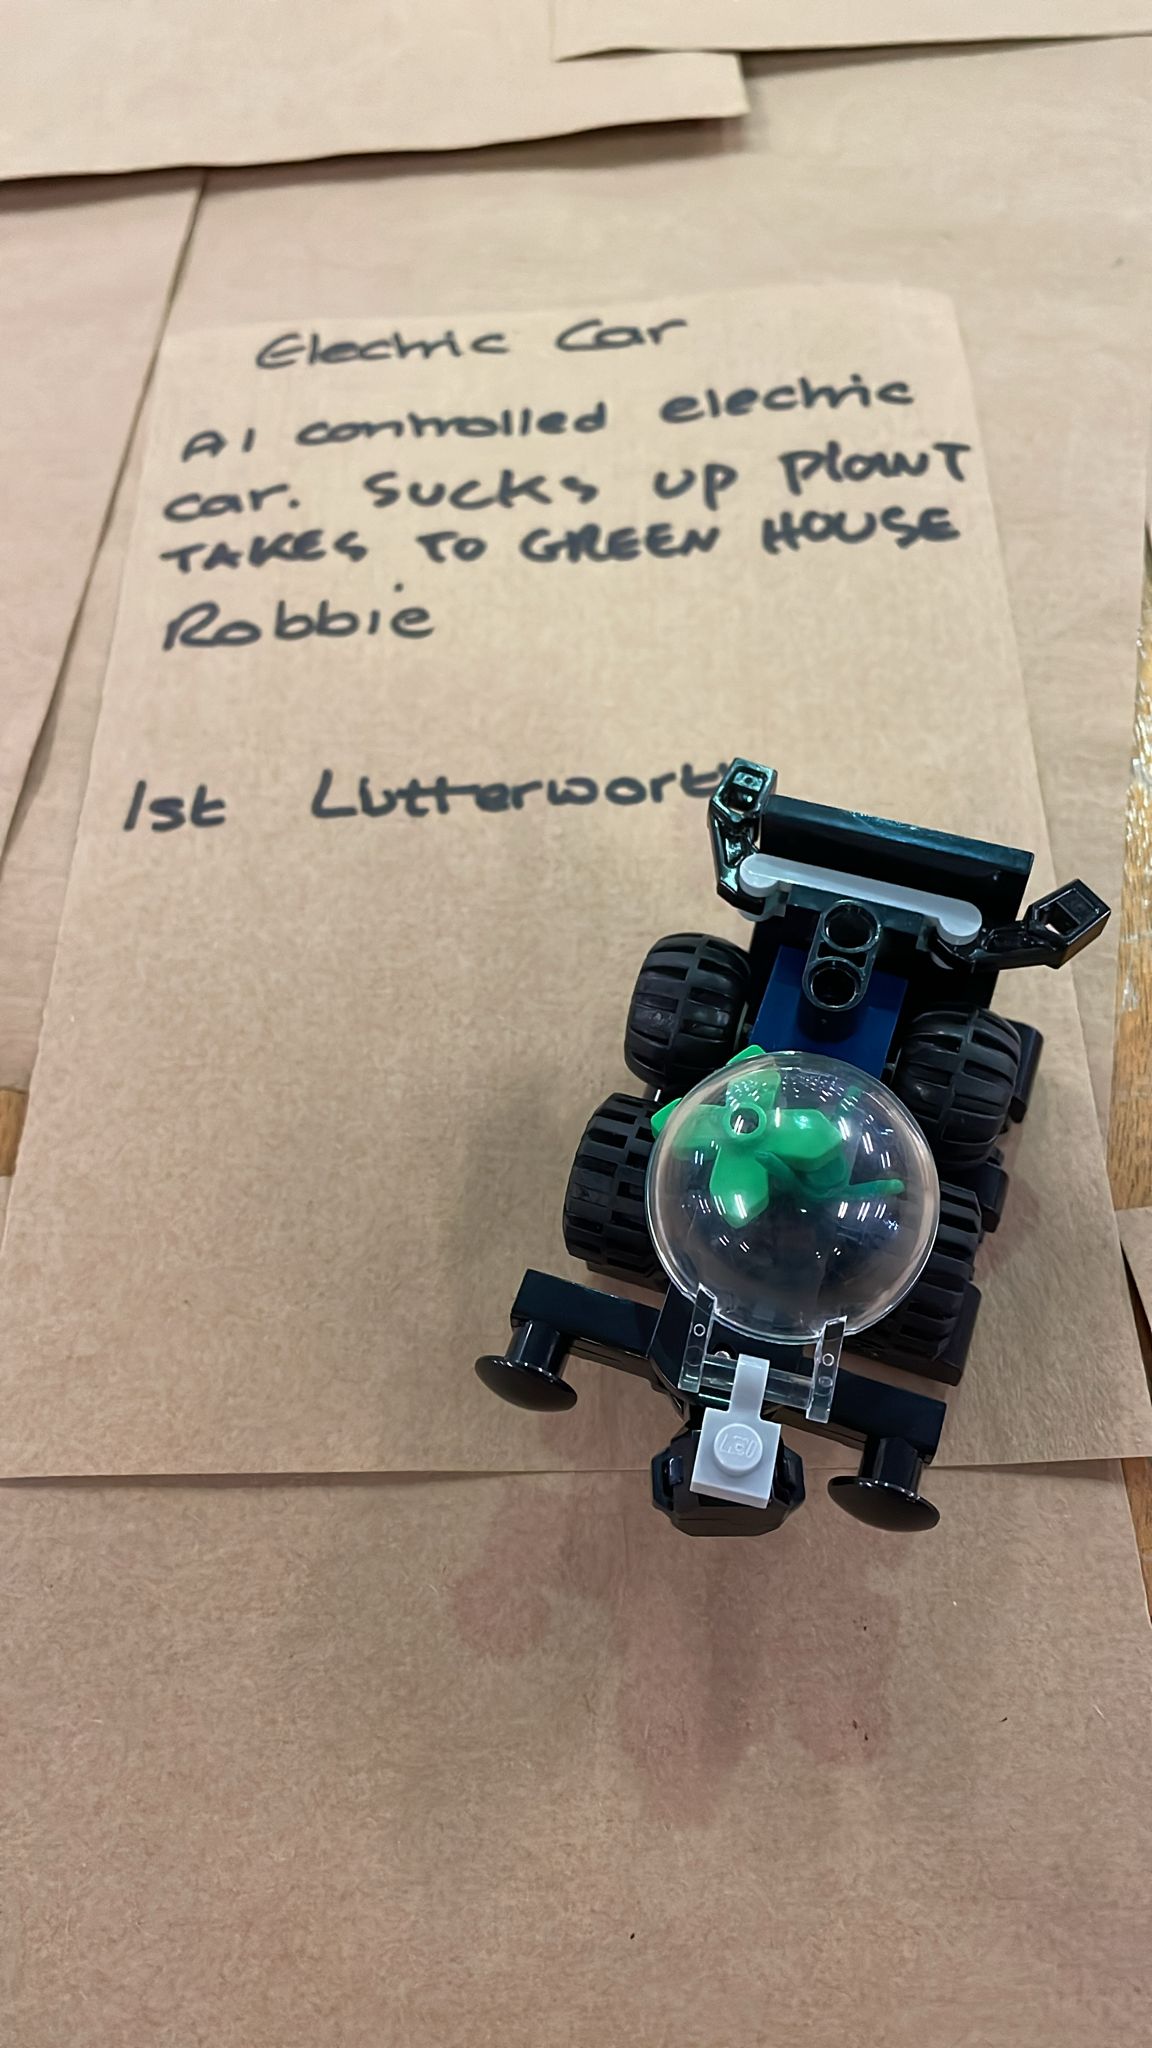 Electric Car
AI controlled electric
car. Sucks up plant
TAKES TO GREEN HOUSE
Robbie
1st Lutterworth